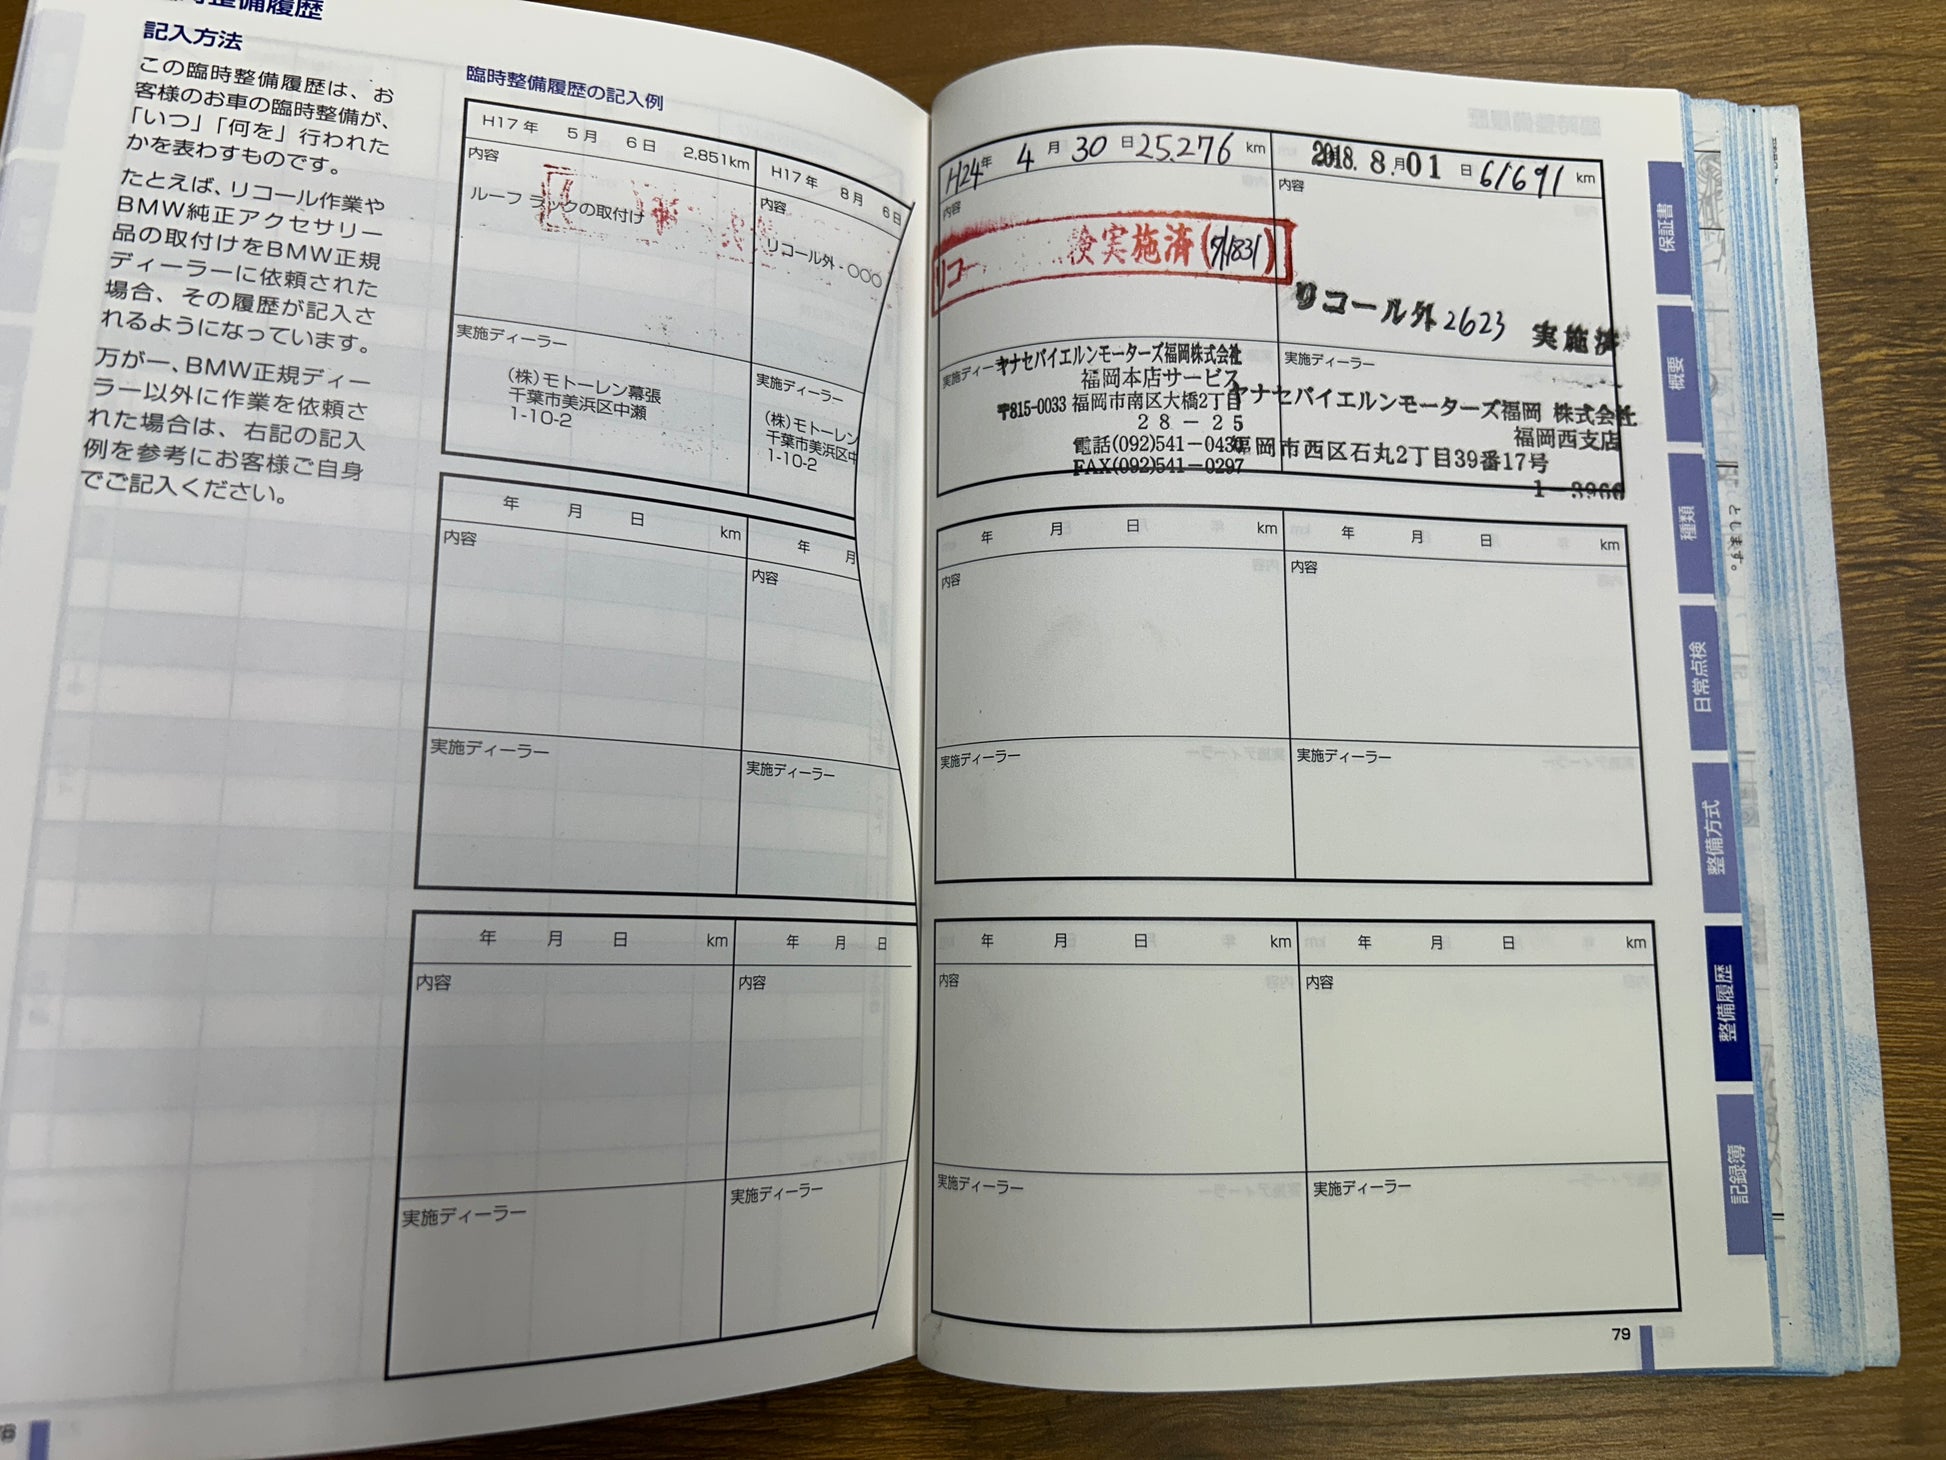 整備履歴
記入方法
この臨時整備履歴は、お
客様のお車の臨時整備が、
「いつ」「何を」行われた
かを表わすものです。
たとえば、リコール作業や
BMW純正アクセサリー
品の取付けをBMW正規
ディーラーに依頼された
場合、その履歴が記入さ
れるようになっています。
万が一、BMW正規ディー
ラー以外に作業を依頼さ
れた場合は、右記の記入
例を参考にお客様ご自身
でご記入ください。
臨時整備履歴の記入例
H17年 5月 6日 2,851km
内容
ルーフ ラックの取付け
実施ディーラー
(株)モトーレン幕張
千葉市美浜区中瀬
1-10-2
H17年 8月 6日
内容
リコール外-○○○
実施ディーラー
(株)モトーレン
千葉市美浜区中
1-10-2
年 月 日 km
内容
実施ディーラー
年 月
内容
実施ディーラー
年 月 日 km
内容
実施ディーラー
年 月 日
内容
実施ディーラー
H24年 4月 30日 25,276 km
内容
リコー 検実施済
実施ディー
ヤナセバイエルンモーターズ福岡株式会社
福岡本店サービス
〒815-0033 福岡市南区大橋2丁目
28-25
電話(092)541-0430
FAX(092)541-0297
2018. 8月01日 61691 km
内容
リコール外2623 実施済
実施ディーラー
ヤナセバイエルンモーターズ福岡 株式会社
福岡西支店
福岡市西区石丸2丁目39番17号
1-3966
年 月 日 km
内容
実施ディーラー
年 月 日 km
内容
実施ディーラー
年 月 日 km
内容
実施ディーラー
年 月 日 km
内容
実施ディーラー
79
保証書
概要
種類
日常点検
整備方式
整備履歴
記録簿
とします。